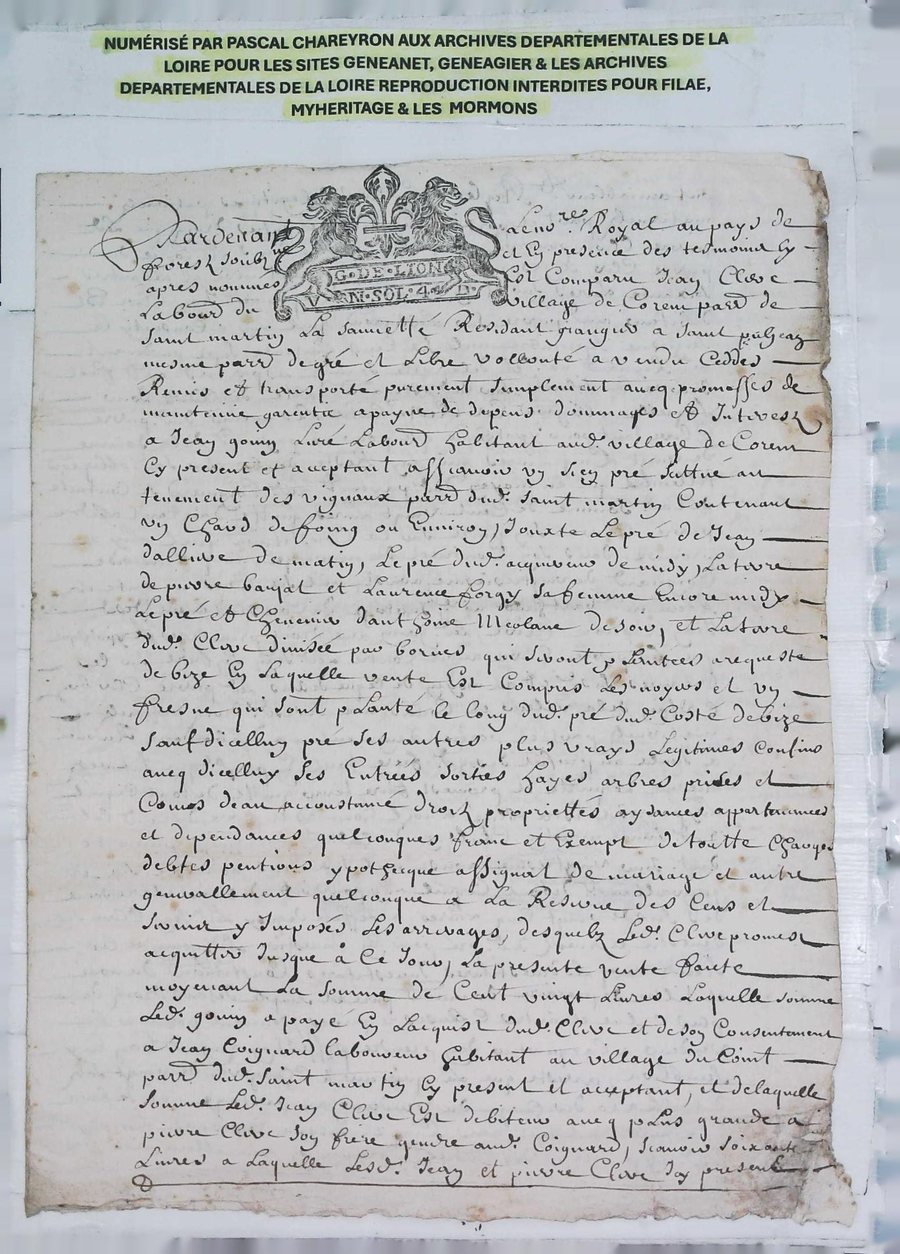 NUMÉRISÉ PAR PASCAL CHAREYRON AUX ARCHIVES DEPARTEMENTALES DE LA
LOIRE POUR LES SITES GENEANET, GENEAGIER & LES ARCHIVES
DEPARTEMENTALES DE LA LOIRE REPRODUCTION INTERDITES POUR FILAE,
MYHERITAGE & LES MORMONS
G·DE·LION
V N·SOL·4·D
Pardevant le no.re Royal au pays de
forestz soubz ne et En presence des tesmoins Cy
apres nommes Est Comparu Jean Clere
Labour.d du village de Corent parr.e de
saint martin La sauvetté Residant granger a saint
mesme parr.e de gré et Libre vollonté a vendu Ceddés
Remis et transporté purement simplement aveq promesses de
maintenue garentie a payne de depens dommages et Interestz
a Jean gouin Labour.d habitant aud. village de Corent
Cy present et acceptant assavoir un sien pré sittué au
tenement des vignaux parr.e dud. saint martin Contenant
un Chard de foing ou Environ, Jouxte Le pré de Jean
dallierre de matin, Le pré dud. acquereur de midy, La terre
de pierre baujat et Laurence forgy sa femme Encore midy
Le pré et Chenevier d'anthoine Meolane de soir, et La terre
dud. Clere divisée par bornes qui seront plantées a requeste
de bize En Laquelle vente Est Compris Les noyers et un
fresne qui sont planté le long dud. pré dud. Costé de bize
sauf dicelluy pré ses autres plus vrays Legitimes Confins
aveq dicelluy ses Entrées sorties hayes arbres prises et
Cours deau accoustumé droitz proprietés aysances appartenances
et dependances quelconques franc et Exempt de toutte Charges
debtes pentions ypothecque assignat de mariage et autre
generallement quelconque a La Reserve des Cens et
servis y Imposés Les arrerages, desquelz Led. Clere promest
acquitter Jusque à Ce Jour, La presente vente faite
moyenant La somme de Cent vingt Livres Laquelle somme
Led. gouin a payé En Lacquist dud. Clere et de son Consentement
a Jean Coignard laboureur habitant au village du Coint
parr.e dud. saint martin Cy present et acceptant, et delaquelle
somme Led. Jean Clere Est debiteur aveq plus grande a
pierre Clere son frere gendre aud. Coignard, scavoir soixante
Livres a Laquelle Lesd. Jean et pierre Clere Icy present